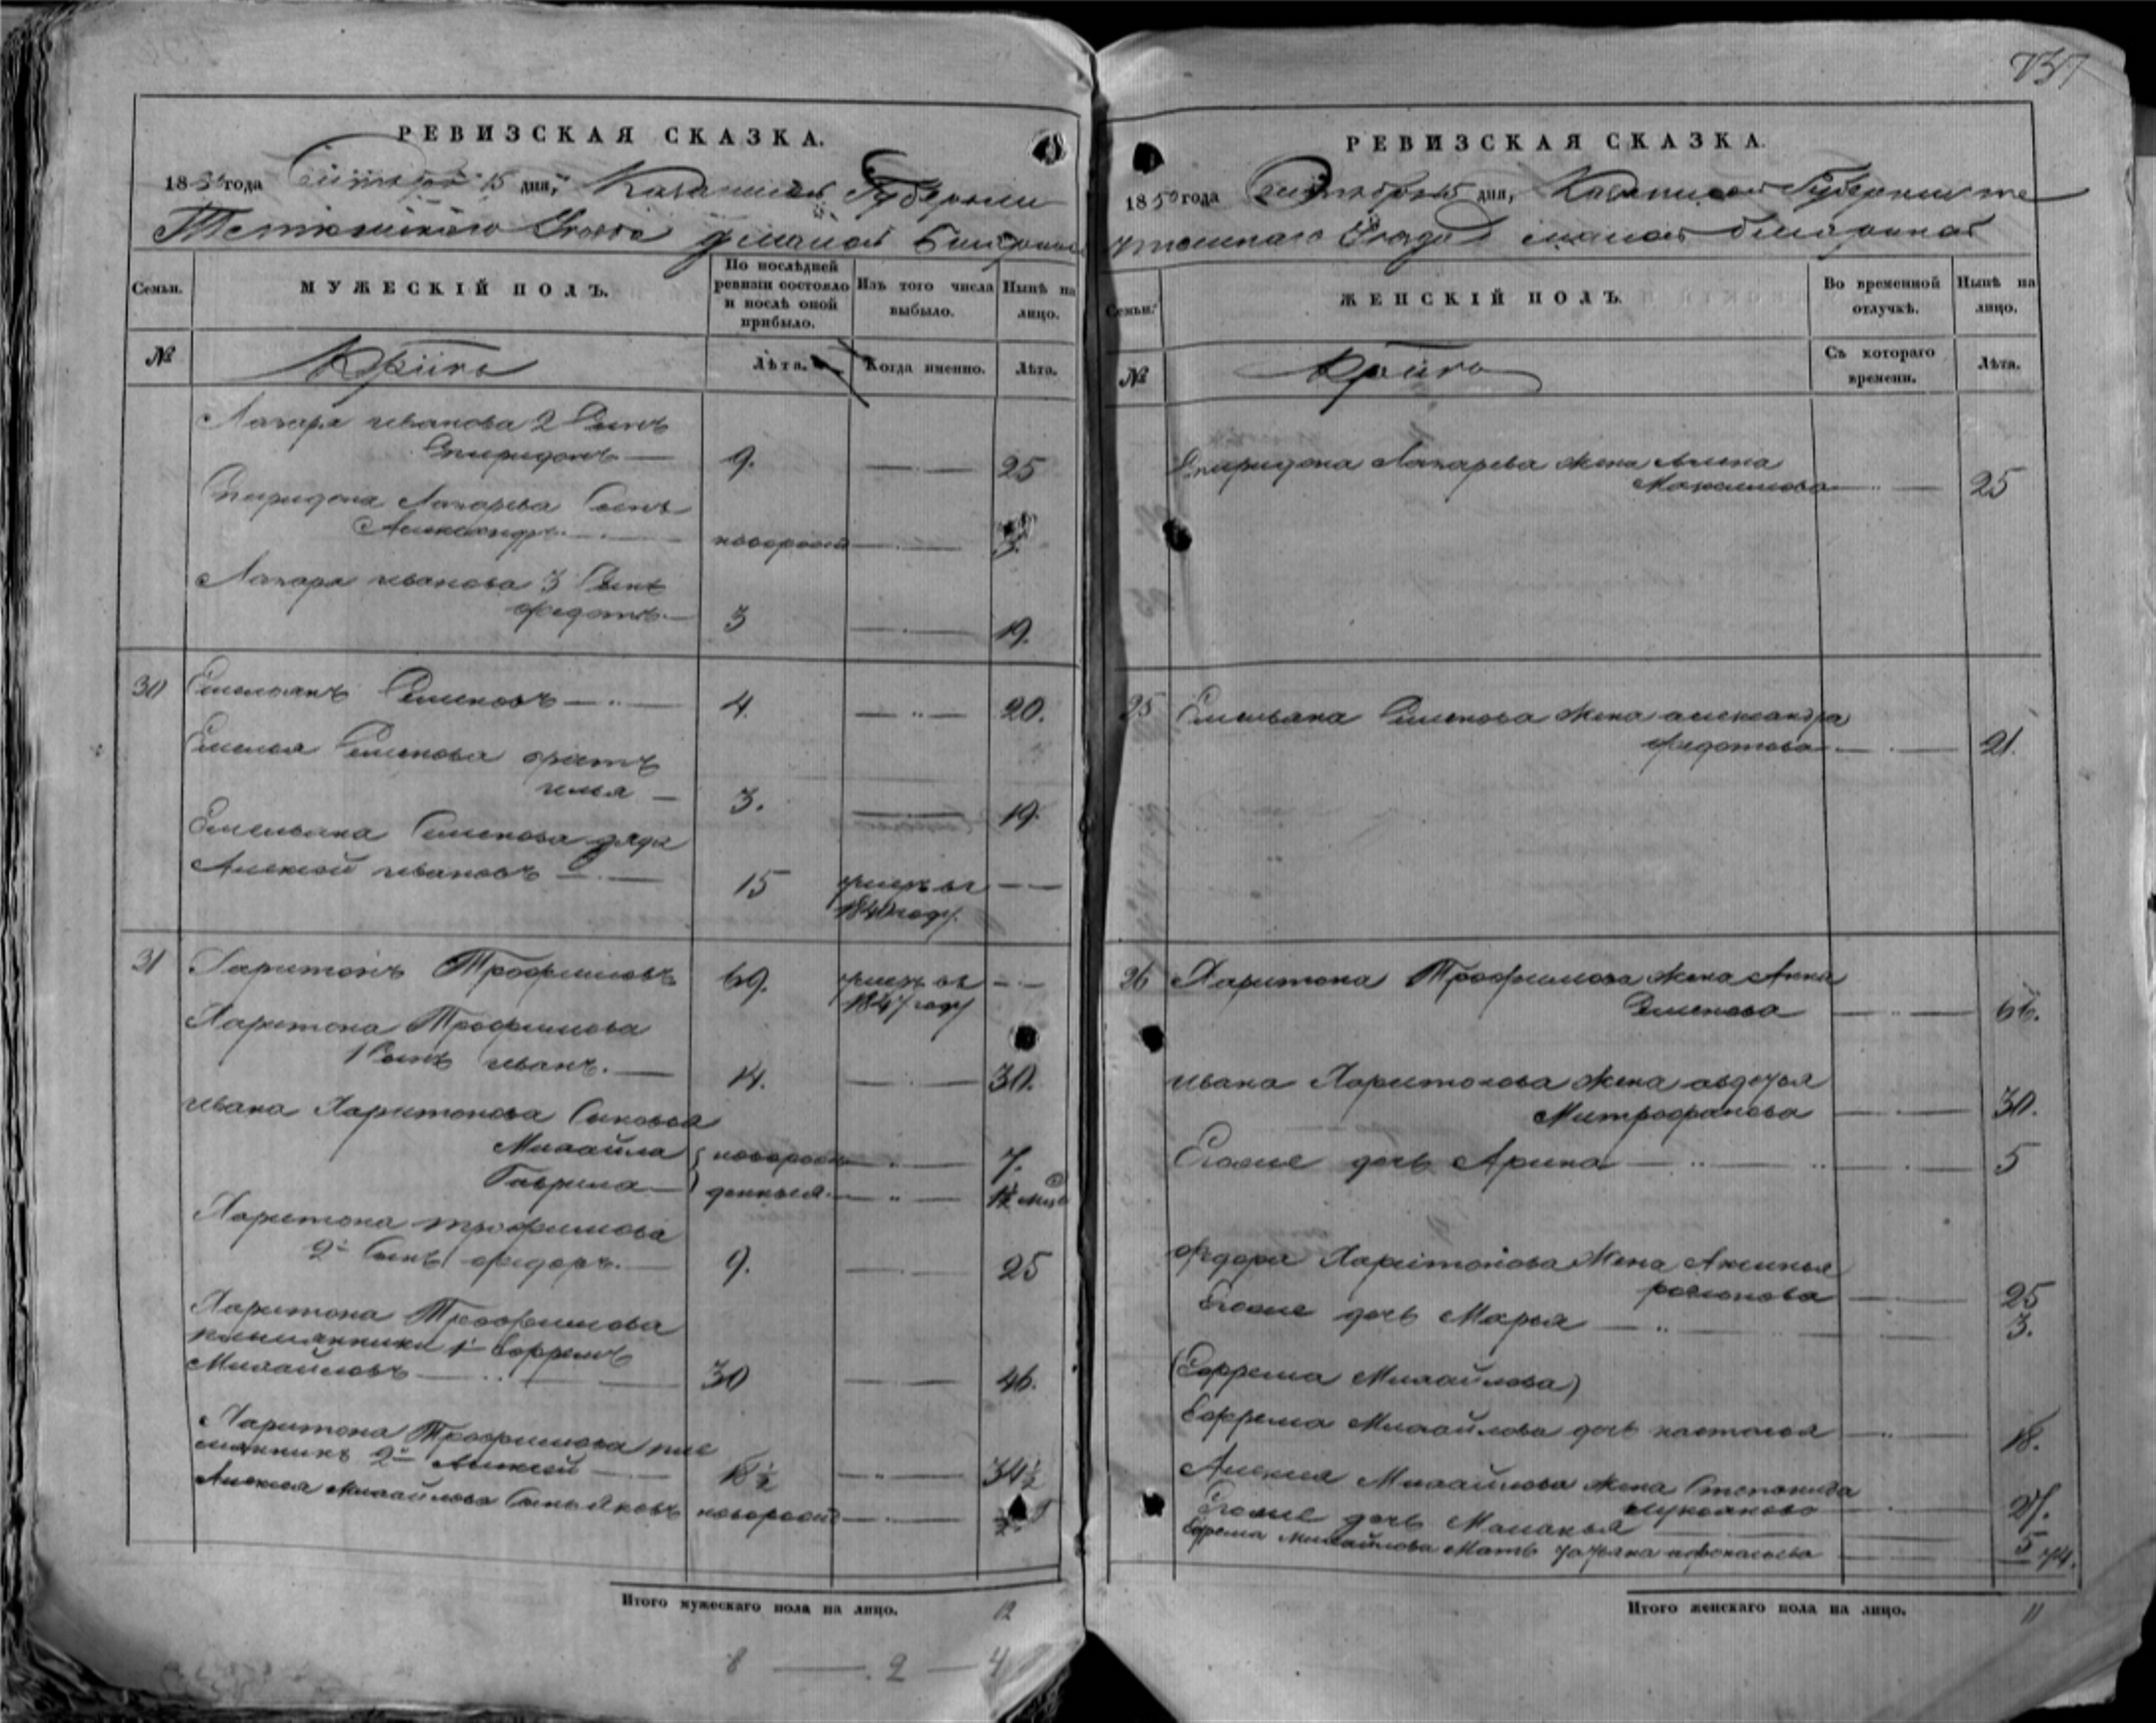 737
РЕВИЗСКАЯ СКАЗКА.
1850 года Октября 15 дня, Казанской Губернии
Тетюшскаго Уезда д малой
Семьи.
МУЖЕСКІЙ ПОЛЪ.
По послѣдней ревизіи состояло и послѣ оной прибыло.
Изъ того числа выбыло.
Нынѣ на лицо.
№
Лѣта.
Когда именно.
Лѣта.
Лазаря иванова 2 Сынъ
Спиридонъ 9. 25
Спиридона Лазарева Сынъ
Александръ новорож 3.
Лазаря иванова 3 Сынъ
Федотъ 3 19.
30 Емельянъ Семеновъ 4. 20.
Емелья Семенова братъ
илья 3. 19.
Емельяна Семенова дядя
Алексей ивановъ 15 умеръ въ
1840 году.
31 Харитонъ Трофимовъ 69. умеръ въ
1847 году
Харитона Трофимова
1 Сынъ иванъ. 14. 30.
ивана Харитонова Сыновья
Михайла новорож 7.
Гаврила денныя 1½ мца
Харитона трофимова
2й Сынъ федоръ. 9. 25
Харитона Трофимова
племянники 1й Ефремъ
Михайловъ 30 46.
Харитона Трофимова пле
мянникъ 2й Алексей 18½ 34½
Алексея Михайлова Сынъ Яковъ новорож
Итого мужескаго пола на лицо. 12
8 — 2 — 4
РЕВИЗСКАЯ СКАЗКА.
1850 года Октября 15 дня, Казанской Губернии те
тюшскаго Уезда д малой
Семьи.
ЖЕНСКІЙ ПОЛЪ.
Во временной отлучкѣ.
Нынѣ на лицо.
№
Съ котораго времени.
Лѣта.
Спиридона Лазарева жена
Максимова 25
25 Емельяна Семенова жена александра
федотова 21.
26 Харитона Трофимова жена Анна
Семенова 66.
ивана Харитонова жена авдотья
Митрофанова 30.
Егоже дочь Арина 5
Федора Харитонова жена Аксинья
родионова 25
Егоже дочь Марья 3.
(Ефрема Михайлова)
Ефрема Михайлова дочь настасья 18.
Алексея Михайлова жена Степанида
лукоянова 27.
Егоже дочь Маланья 5
Ефрема Михайлова Мать татьяна афонасьева 74.
Итого женскаго пола на лицо. 11